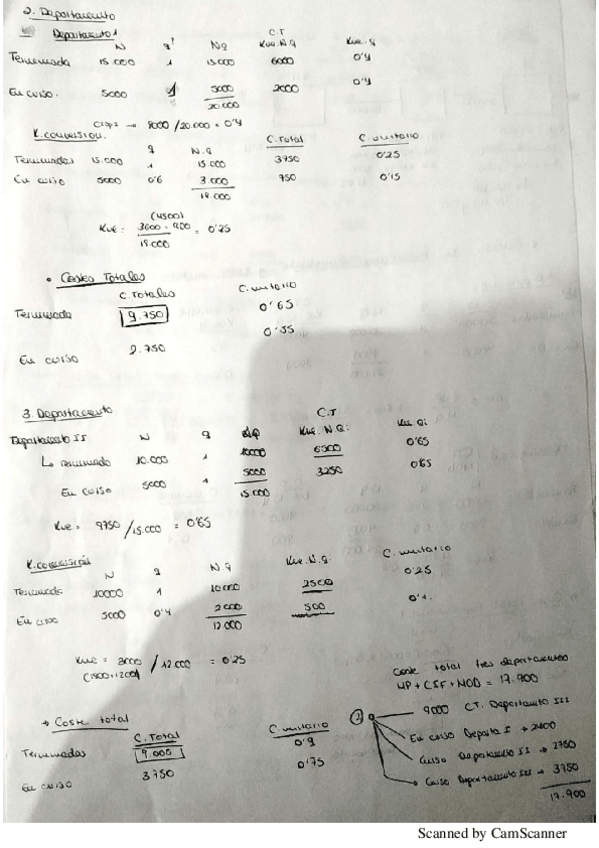 2. Departamento
Departamento 1
N q Nq C.T Kue.N.q Kue.q
Terminada 15.000 1 15.000 6000 0'4
En curso. 5000 1 5000 2000 0'4
20.000
8000/20.000 = 0'4
K.conversion. q N.q C.Total C.unitario
Terminadas 15.000 1 15.000 3750 0'25
En curso 5000 0'6 3.000 750 0'15
18.000
(4500)
Kue = 3600 + 900 = 0'25
18.000
• Costes Totales
C.Totales C.unitario
Terminada 9.750 0'65
En curso 2.750 0'55
3. Departamento
C.T
Departamento II N q Kue.N.Q. Kue.Qi
↳ Terminado 10.000 1 10000 6500 0'65
En curso 5000 1 5000 3250 0'65
15.000
Kue = 9750/15.000 = 0'65
K.conversión
N q N.q Kue.N.q. C.unitario
Terminada 10000 1 10.000 2500 0'25
En curso 5000 0'4 2000 500 0'1.
12.000
Kue = 3000/12.000 = 0'25
(1800+1200)
Coste total tres departamentos
MP + CIF + MOD = 17.900
→ Coste total
C.Total C.unitario
Terminadas 9.000 0'9
En curso 3750 0'75
9000 C.T. Departamento III
En curso Departa I → 2400
Curso Departamento II → 2750
Curso Departamento III → 3750
17.900
Scanned by CamScanner